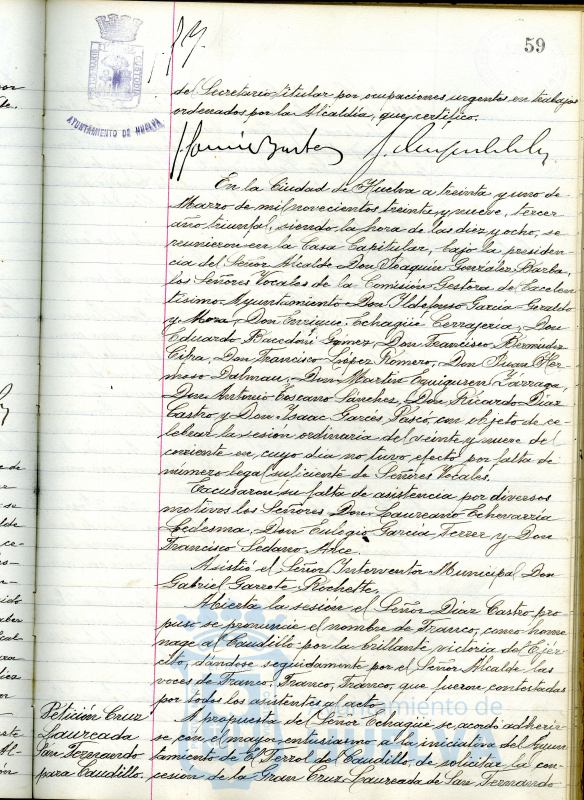 59
AYUNTAMIENTO DE HUELVA
del Secretario Titular por ocupaciones urgentes en trabajos
ordenados por la Alcaldía, que certifico.
En la Ciudad de Huelva a treinta y uno de
Marzo de mil novecientos treinta y nueve, tercer
año triunfal, siendo la hora de las diez y ocho, se
reunieron en la Casa Capitular, bajo la presiden-
cia del Señor Alcalde Don Joaquín González Barba,
los Señores Vocales de la Comisión Gestora del Excelen-
tísimo Ayuntamiento Don Ildefonso García Geraldo
y Mora, Don Enrique Echagüe Cerrajeria, Don
Eduardo Gómez, Don Francisco Bermúdez
Cifra, Don Francisco López Romero, Don Juan Her-
moso Dalmau, Don Martín Eguiguren Tarraga,
Don Antonio Toscano Sánchez, Don Ricardo Díaz
Castro y Don Isaac Garcés Pascó, con objeto de ce-
lebrar la sesión ordinaria del veinte y nueve del
corriente en cuyo día no tuvo efecto por falta de
número legal suficiente de Señores Vocales.
Excusaron su falta de asistencia por diversos
motivos los Señores Don Laureano Echevarria
Ledesma, Don Eulogio García Ferrer y Don
Francisco Sedano Arce.
Asistió el Señor Interventor Municipal Don
Gabriel Garrote Rochette.
Abierta la sesión el Señor Díaz Castro pro-
puso se pronuncie el nombre de Franco, como home-
nage al Caudillo por la brillante victoria del Ejér-
cito, dándose seguidamente por el Señor Alcalde las
voces de Franco, Franco, Franco, que fueron contestadas
por todos los asistentes al acto.
Petición Cruz
Laureada
San Fernando
para Caudillo.
A propuesta del Señor Echagüe se acordó adherir-
se con el mayor entusiasmo a la iniciativa del Ayun-
tamiento de El Ferrol del Caudillo, de solicitar la con-
cesión de la Gran Cruz Laureada de San Fernando
Ayuntamiento de
HUELVA